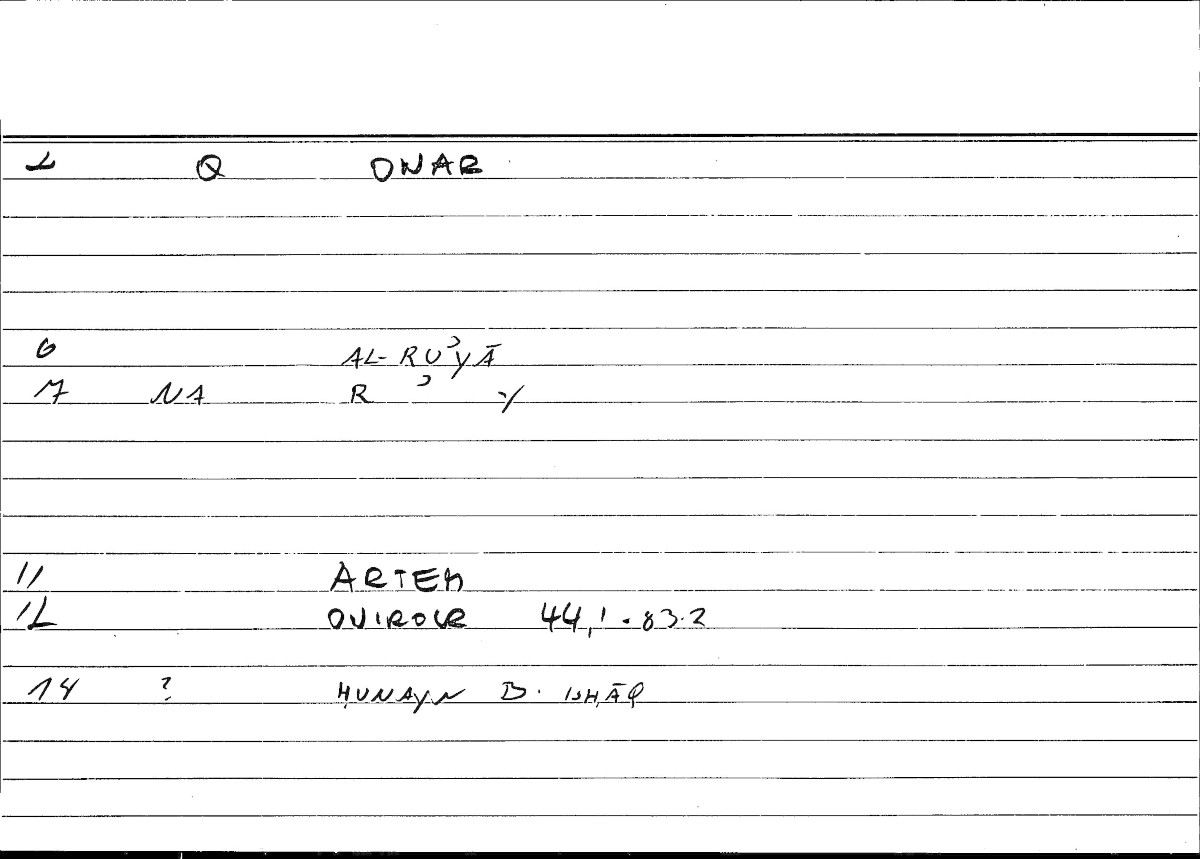 2 Q ONAR
6 AL-RUʾYĀ
7 NA R ʾ Y
11 ARTEM
12 ONIROCR 44,1-83.2
14 ? ḤUNAYN B. ISḤĀQ